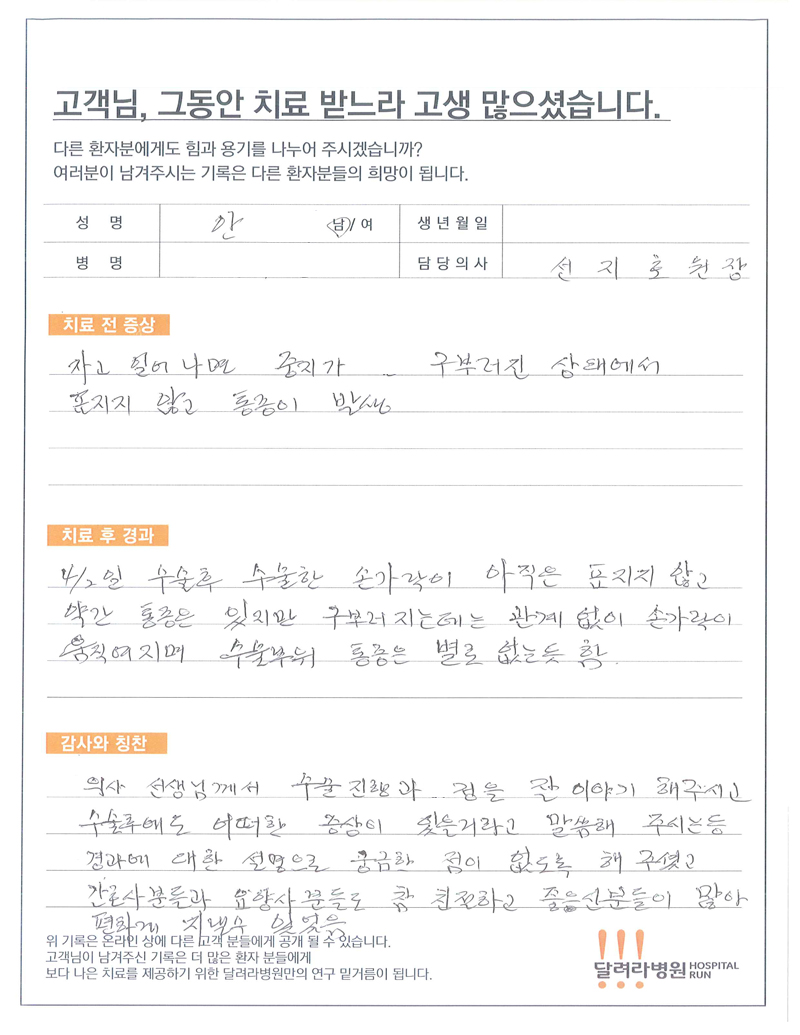 고객님, 그동안 치료 받느라 고생 많으셨습니다.
다른 환자분에게도 힘과 용기를 나누어 주시겠습니까?
여러분이 남겨주시는 기록은 다른 환자분들의 희망이 됩니다.
성 명 안 남/여 생년월일
병 명 담당의사 선지호 원장
치료 전 증상
자고 일어나면 중지가 구부러진 상태에서
펴지지 않고 통증이 발생
치료 후 경과
수술후 수술한 손가락이 아직은 펴지지 않고
약간 통증은 있지만 구부러지는데는 관계 없이 손가락이
움직여지며 수술부위 통증은 별로 없는듯 함.
감사와 칭찬
의사 선생님께서 수술 진행과 점을 잘 이야기 해주시고
수술후에도 어떠한 증상이 있을거라고 말씀해 주시는등
경과에 대한 설명으로 궁금한 점이 없도록 해 주셨고
간호사분들과 요양사분들도 참 친절하고 좋으신분들이 많아
편하게 지낼수 있었음
위 기록은 온라인 상에 다른 고객 분들에게 공개 될 수 있습니다.
고객님이 남겨주신 기록은 더 많은 환자 분들에게
보다 나은 치료를 제공하기 위한 달려라병원만의 연구 밑거름이 됩니다.
달려라병원 HOSPITAL RUN